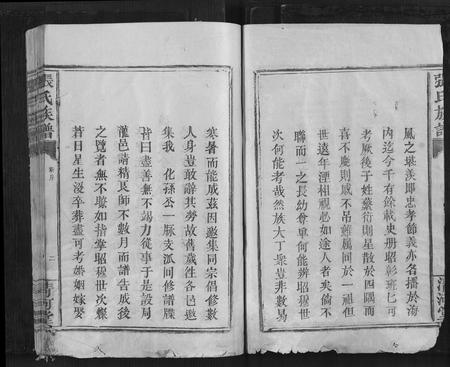 張氏族譜
清河堂
風之堪羨即忠孝節義亦名播於海
內迄今千有餘載史册昭彰班班可
考厥後子姓蕃衍則星散於四隅而
喜不慶則慼不吊雖属同於一祖但
世遠年湮相視必如途人者矣倘不
聯而一之長幼尊卑何能辨昭穆世
次何能考哉然族大丁衆豈非數易
寒暑而能成茲因邀集同宗倡修數
人身豈敢辭其勞故舊歲往各邑邀
集我化孫公一脈支派同修譜牒
皆曰盡善無不竭力從事于是設局
灌邑請精良師不數月而譜告成後
之覽者無不瞭如指掌昭穆世次燦
若日星生沒卒葬盡可考婚姻嫁娶
張氏族譜
序
二
清河堂